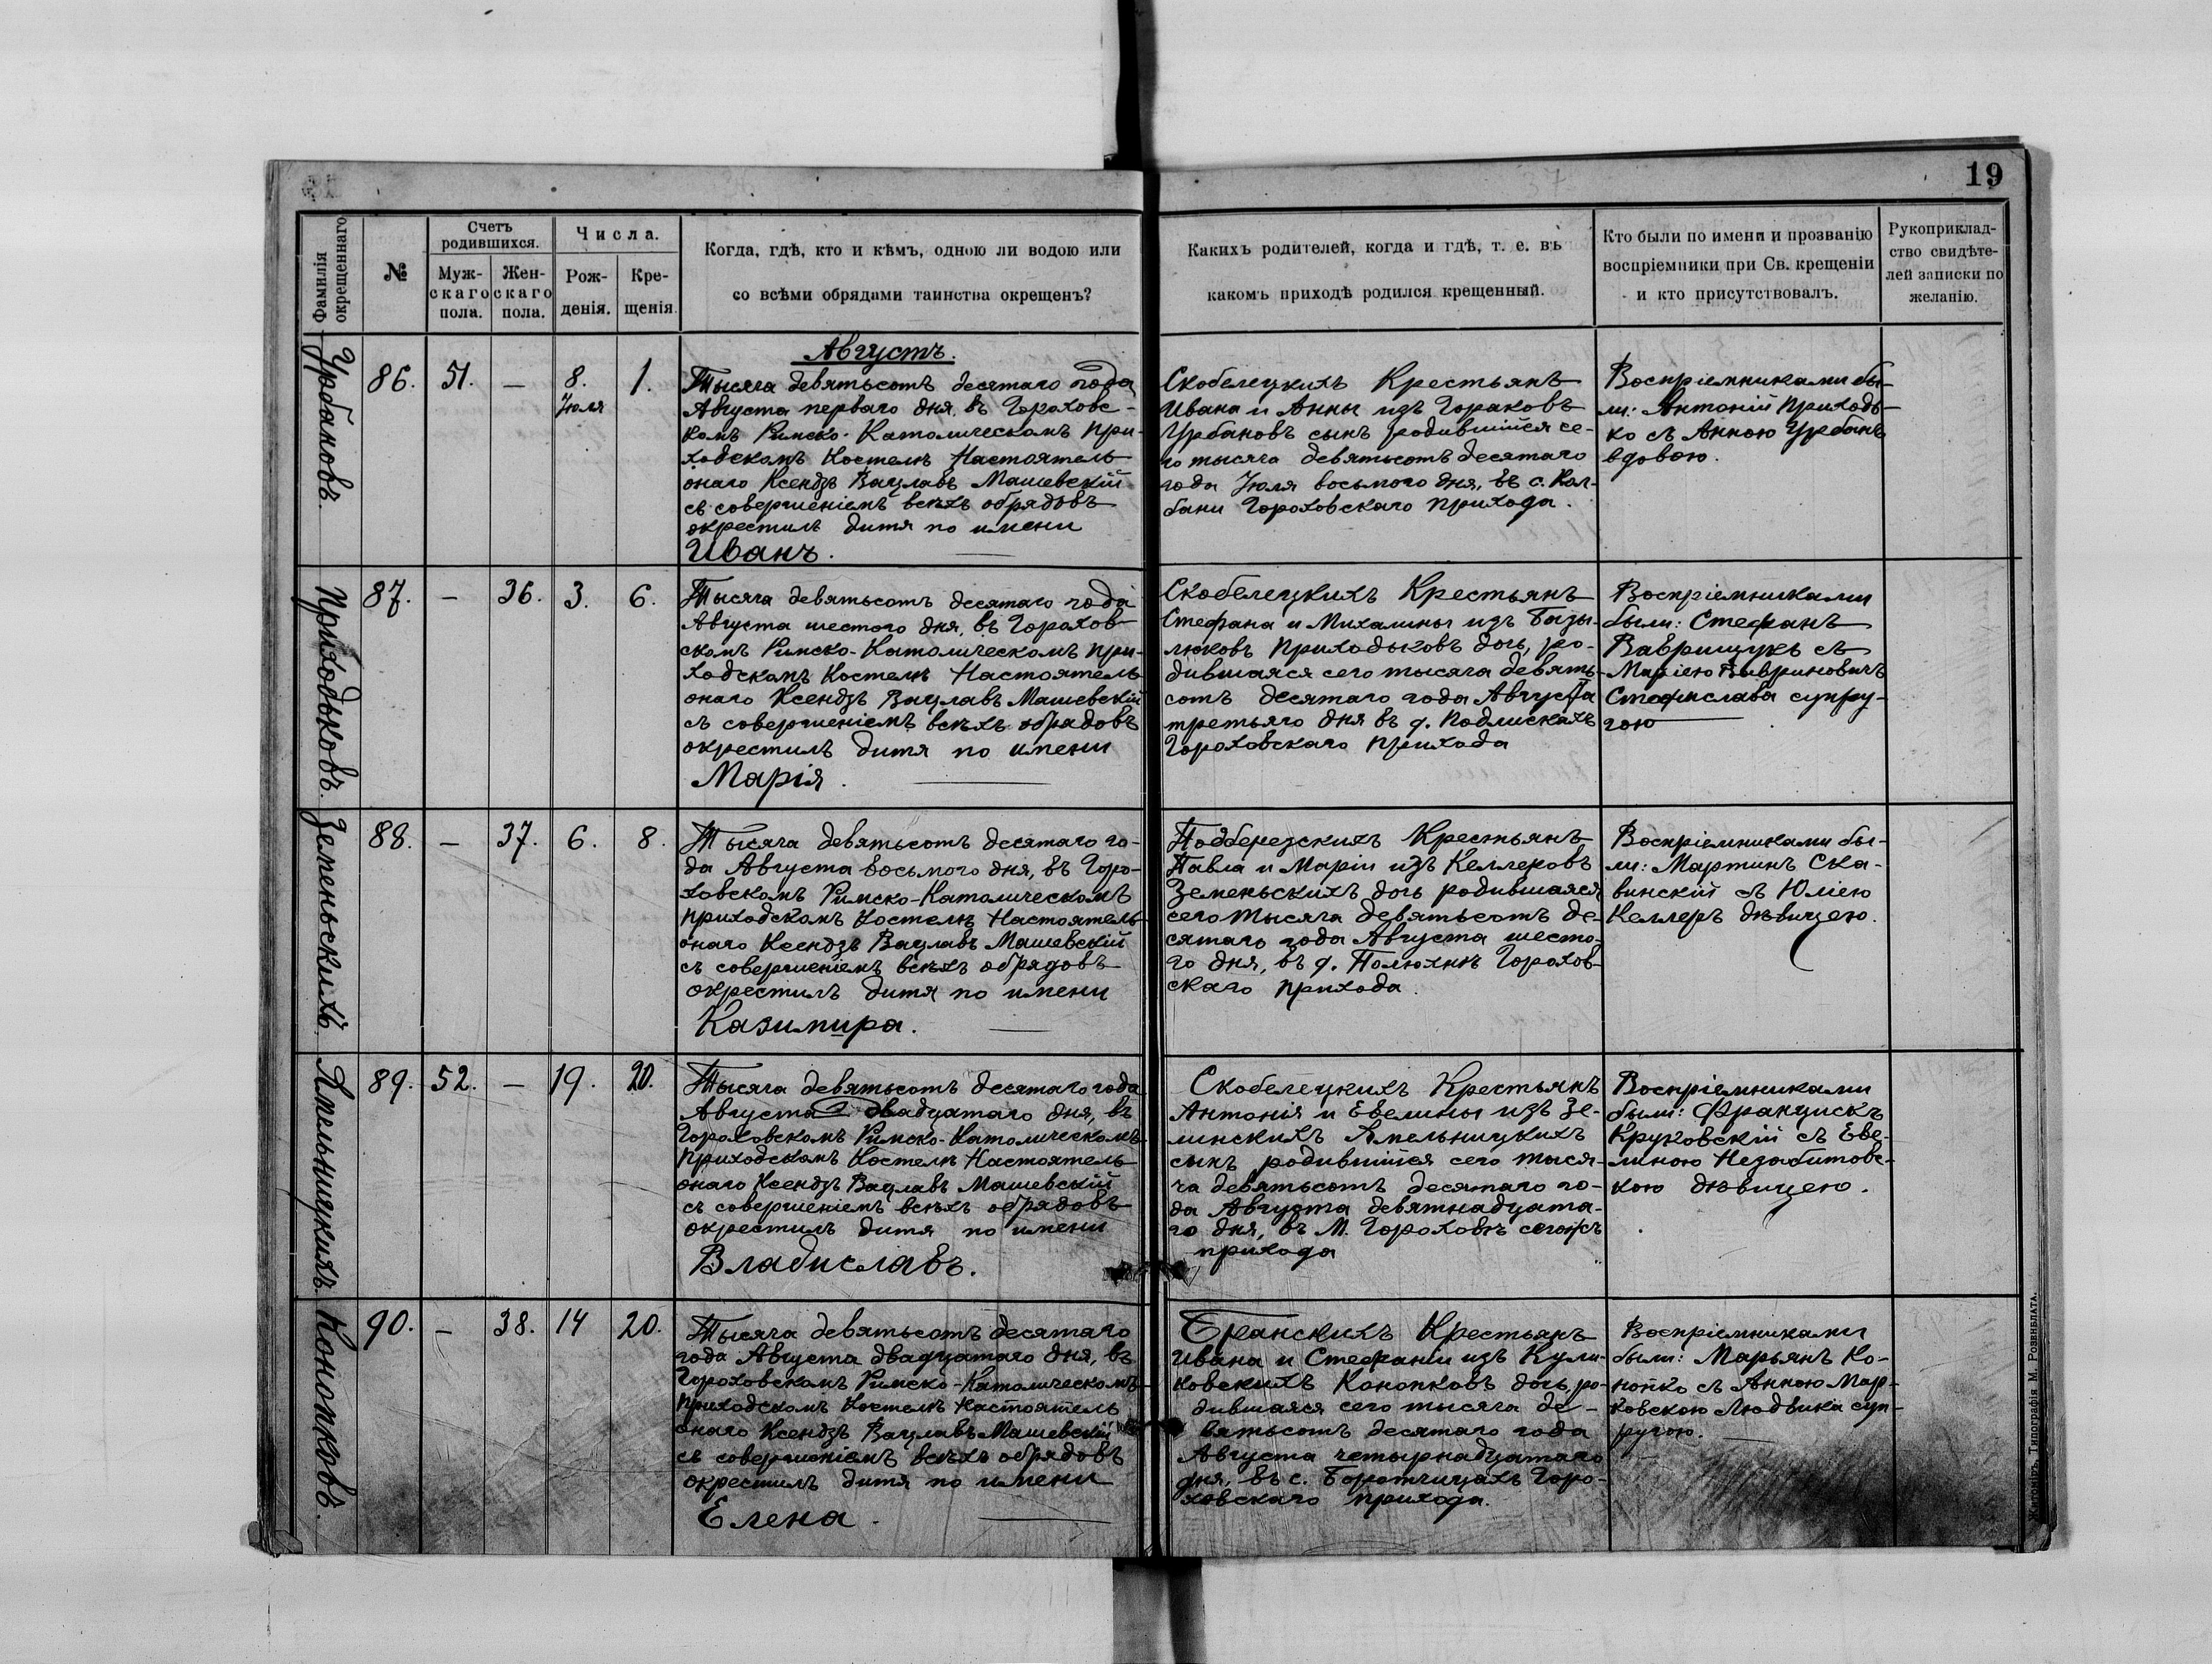 19
Фамилія окрещеннаго
№
Счетъ родившихся.
Муж-
скаго
пола.
Жен-
скаго
пола.
Числа.
Рож-
денія.
Кре-
щенія.
Когда, гдѣ, кто и кѣмъ, одною ли водою или
со всѣми обрядами таинства окрещенъ?
Каких​ъ родителей, когда и гдѣ, т. е. въ
какомъ приходѣ родился крещенный.
Кто были по имени и прозванію
воспріемники при Св. крещеніи
и кто присутствовалъ.
Рукоприклад-
ство свидѣте-
лей записки по
желанію.
Урбановъ.
86.
51.
—
8.
Іюля
1.
Августъ.
Тысяча девятьсотъ десятаго года
Августа перваго дня, въ Гороховс-
комъ Римско-Католическомъ При-
ходскомъ Костелѣ Настоятель
онаго Ксендзъ Вацлавъ Машевскій
съ совершеніемъ всѣхъ обрядовъ
окрестилъ дитя по имени
Иванъ.
Скобелецкихъ Крестьянъ
Ивана и Анны изъ Гораковъ
Урбановъ сынъ родившійся се-
го тысяча девятьсотъ десятаго
года Іюля восьмого дня, въ с. Кол-
бани Гороховскаго прихода.
Воспріемниками бы-
ли: Антоній Приходь-
ко съ Анною Урбанъ
вдовою.
Приходьковъ.
87.
—
36.
3.
6.
Тысяча девятьсотъ десятаго года
Августа шестого дня, въ Горохов-
скомъ Римско-Католическомъ При-
ходскомъ Костелѣ Настоятель
онаго Ксендзъ Вацлавъ Машевскій
съ совершеніемъ всѣхъ обрядовъ
окрестилъ дитя по имени
Марія.
Скобелецкихъ Крестьянъ
Стефана и Михалины изъ Базы-
люковъ Приходьковъ дочь, ро-
дившаяся сего тысяча девять-
сотъ десятаго года Августа
третьяго дня въ д. Подлискахъ
Гороховскаго прихода
Воспріемниками
были: Стефанъ
Ваврищукъ съ
Маріею Вавриновичъ
супру-
гою
Земеньскихъ.
88.
—
37.
6.
8.
Тысяча девятьсотъ десятаго го-
да Августа восьмого дня, въ Горо-
ховскомъ Римско-Католическомъ
приходскомъ Костелѣ Настоятель
онаго Ксендзъ Вацлавъ Машевскій
съ совершеніемъ всѣхъ обрядовъ
окрестилъ дитя по имени
Казимира.
Подберезскихъ Крестьянъ
Павла и Маріи изъ Келлеровъ
Земеньскихъ дочь родившаяся
сего тысяча девятьсотъ де-
сятаго года Августа шесто-
го дня, въ д. Полюхнѣ Горохов-
скаго прихода.
Воспріемниками бы-
ли: Мартинъ Ска-
винскій съ Юліею
Келлеръ дѣвицею.
Ямельницкихъ.
89.
52.
—
19.
20.
Тысяча девятьсотъ десятаго года
Августа двадцатаго дня, въ
Гороховскомъ Римско-Католическомъ
Приходскомъ Костелѣ Настоятель
онаго Ксендзъ Вацлавъ Машевскій
съ совершеніемъ всѣхъ обрядовъ
окрестилъ дитя по имени
Владиславъ.
Скобелецкихъ Крестьянъ
Антонія и Евелины изъ Зе-
линскихъ Ямельницкихъ
сынъ родившійся сего тыся-
ча девятьсотъ десятаго го-
да Августа девятнадцата-
го дня, въ М. Гороховѣ сегожъ
прихода
Воспріемниками
были: Францискъ
Круковскій съ Еве-
линою Незабитовс-
кою дѣвицею.
Конопковъ.
90.
—
38.
14
20.
Тысяча девятьсотъ десятаго
года Августа двадцатаго дня, въ
Гороховскомъ Римско-Католическомъ
Приходскомъ Костелѣ Настоятель
онаго Ксендзъ Вацлавъ Машевскій
съ совершеніемъ всѣхъ обрядовъ
окрестилъ дитя по имени
Елена.
Бранскихъ Крестьянъ
Ивана и Стефаніи изъ Кули-
ковскихъ Конопковъ дочь, ро-
дившаяся сего тысяча де-
вятьсотъ десятаго года
Августа четырнадцатаго
дня, въ с. Боротчицахъ Горо-
ховскаго прихода.
Воспріемниками
были: Марьянъ Ко-
нопко съ Анною Мар-
ковскою Людвика суп-
ругою.
Житоміръ, Типографія М. Ровенблата.